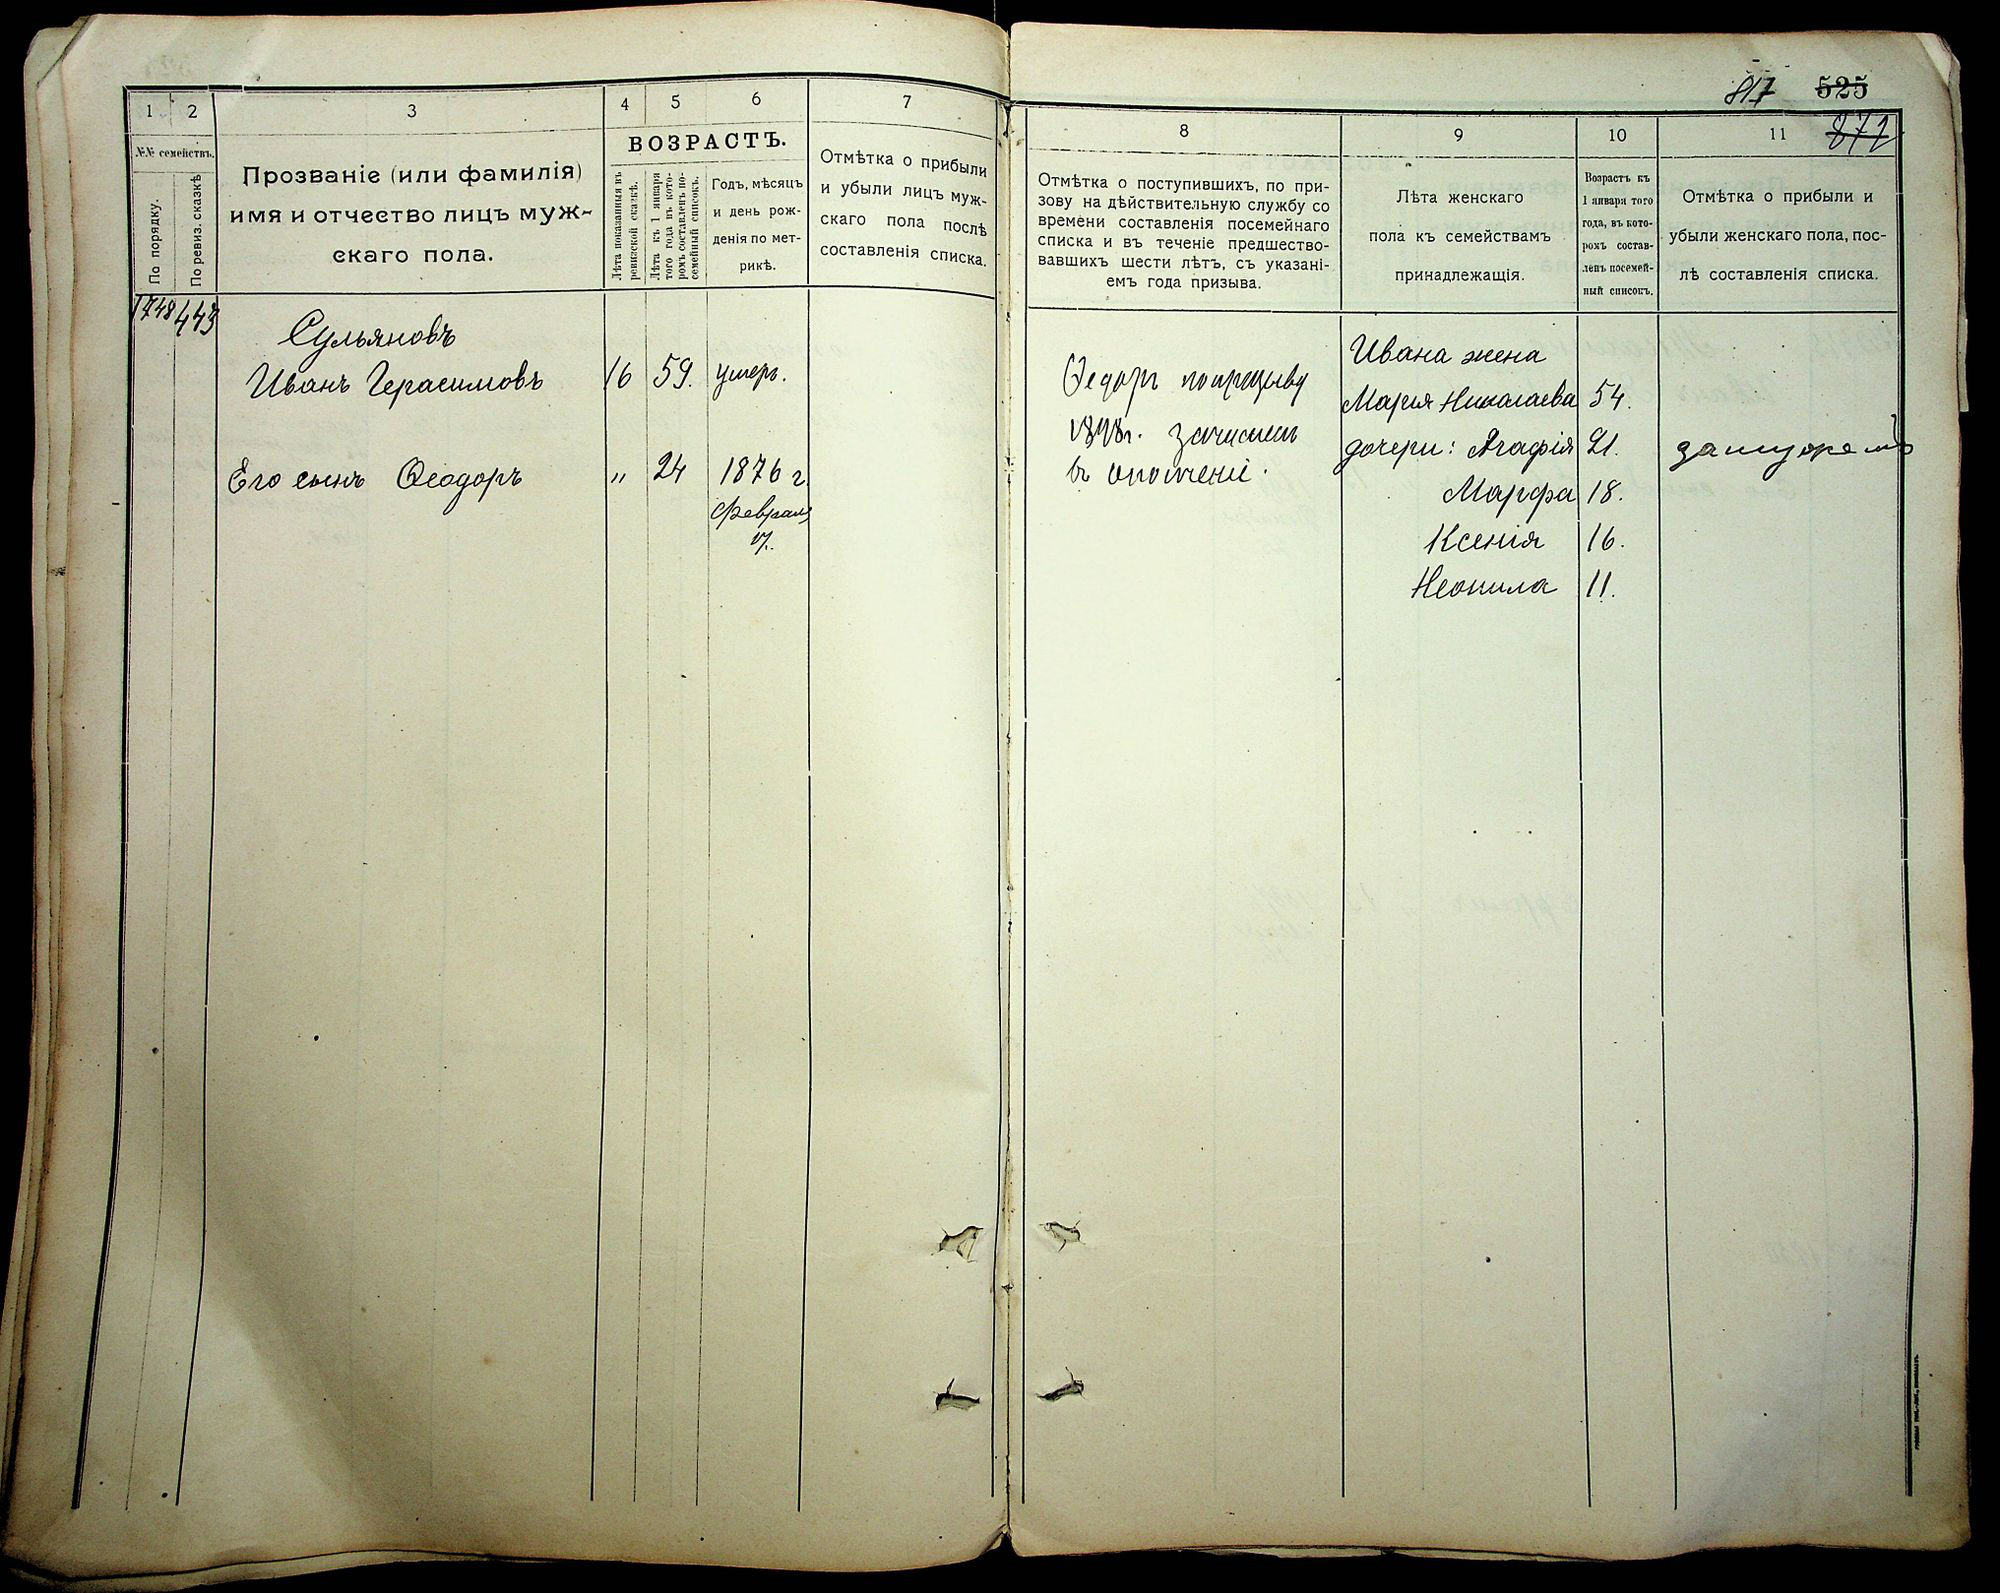 1
2
3
4
5
6
7
№№ семействъ.
ВОЗРАСТЪ.
По порядку.
По ревиз. сказкѣ
Прозваніе (или фамилія)
имя и отчество лицъ муж-
скаго пола.
Лѣта показанныя въ
ревизской сказкѣ.
Лѣта къ 1 января
того года въ кото-
ромъ составленъ по-
семейный списокъ.
Годъ, мѣсяцъ
и день рож-
денія по мет-
рикѣ.
Отмѣтка о прибыли
и убыли лицъ муж-
скаго пола послѣ
составленія списка.
1748 443
Сульяновъ
Иванъ Герасимовъ 16 59. умеръ.
Его сынъ Ѳеодоръ " 24 1876 г.
февраля
17.
817 525
872
8
9
10
11
Отмѣтка о поступившихъ, по при-
зову на дѣйствительную службу со
времени составленія посемейнаго
списка и въ теченіе предшество-
вавшихъ шести лѣтъ, съ указані-
емъ года призыва.
Лѣта женскаго
пола къ семействамъ
принадлежащія.
Возрастъ къ
1 января того
года, въ кото-
ромъ состав-
ленъ посемей-
ный списокъ.
Отмѣтка о прибыли и
убыли женскаго пола, пос-
лѣ составленія списка.
Ѳедоръ по призыву
1898 г. зачисленъ
въ ополченіе.
Ивана жена
Марія Николаева 54.
дочери: Агафія 21. замужемъ
Марфа 18.
Ксенія 16.
Неонила 11.